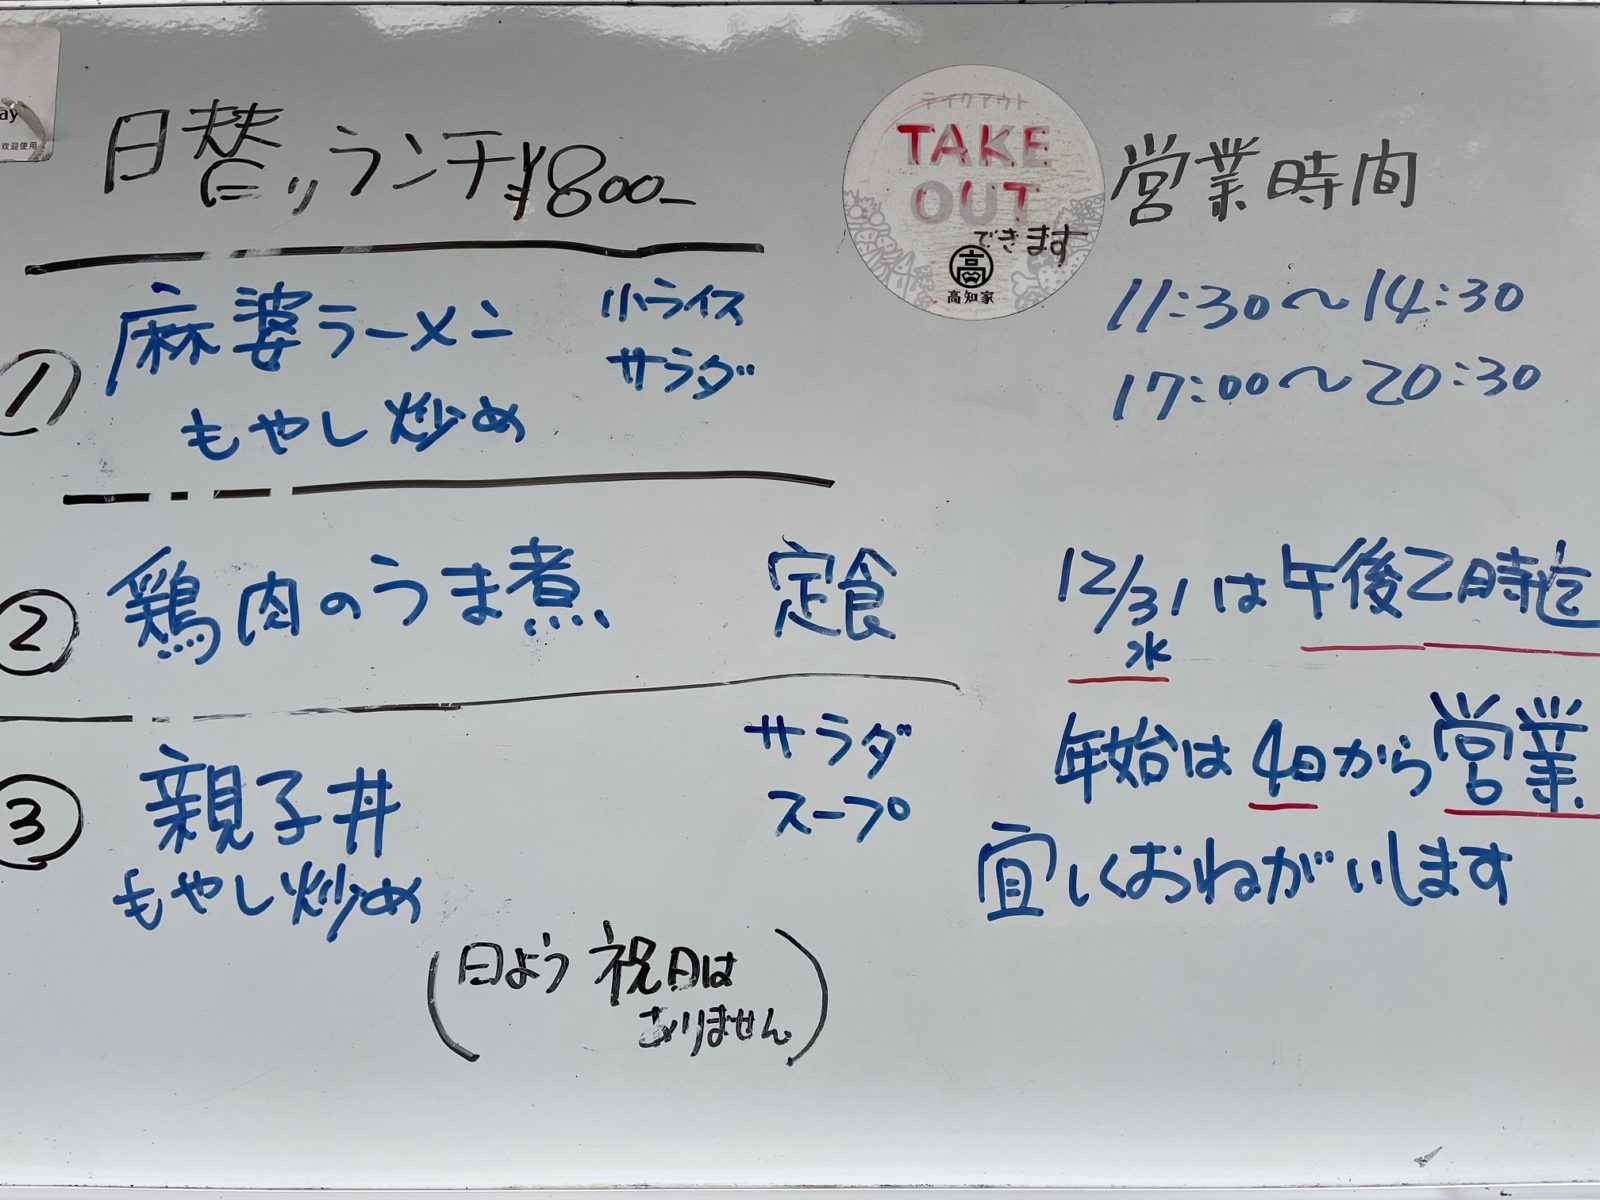 ay
欢迎使用
日替りランチ¥800-
① 麻婆ラーメン 小ライス
サラダ
もやし炒め
② 鶏肉のうま煮 定食
③ 親子丼 サラダ
スープ
もやし炒め
(日よう祝日は
ありません)
テイクアウト
TAKE
OUT
できます
高
高知家
営業時間
11:30〜14:30
17:00〜20:30
12/31は午後2時迄
水
年始は4日から営業
宜しくおねがいします